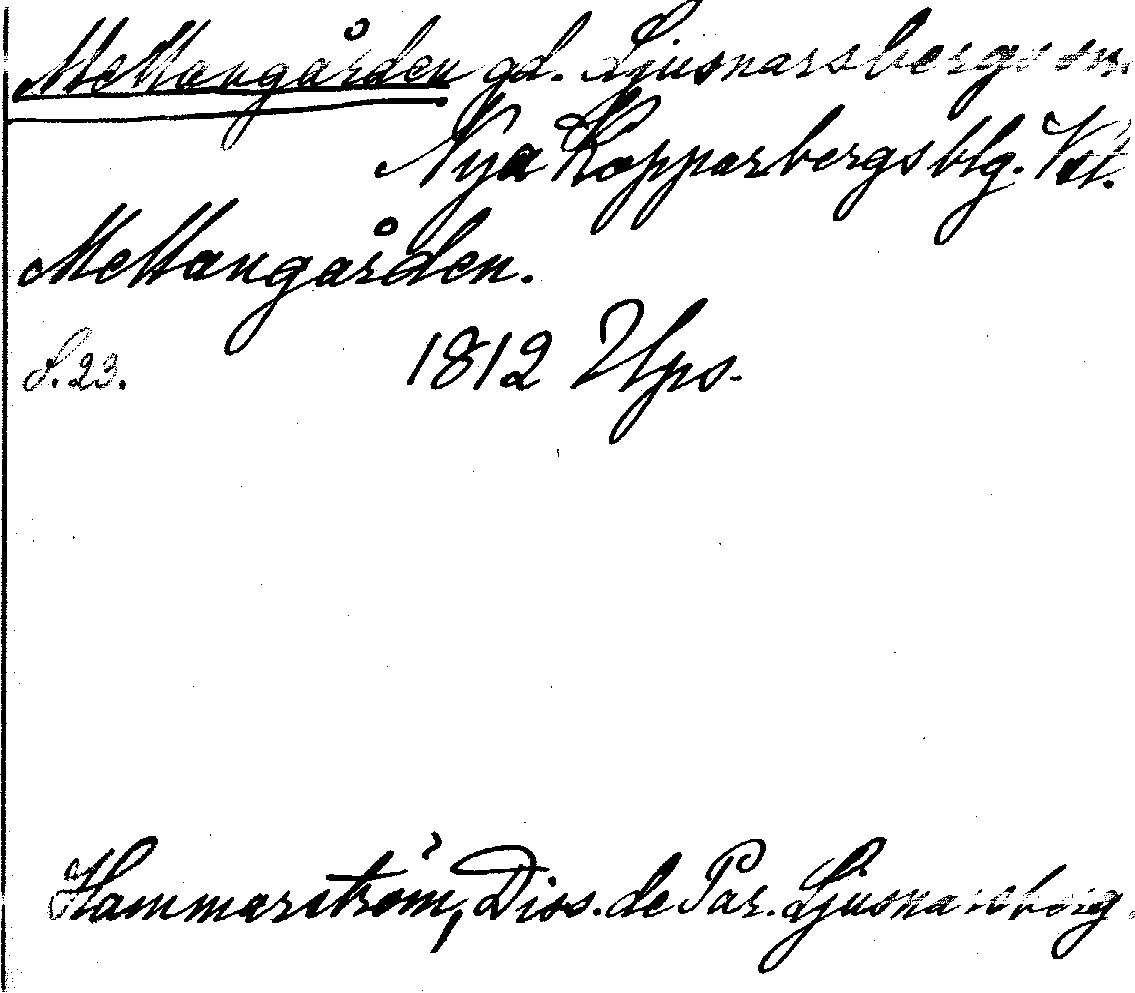 Mellangården gd. Ljusnarsbergs sn.
Nya Kopparbergs blg. Vstl.
Mellangården.
S. 23. 1812 Ups.
Hammarström, Diss. de Par. Ljusnarsberg.